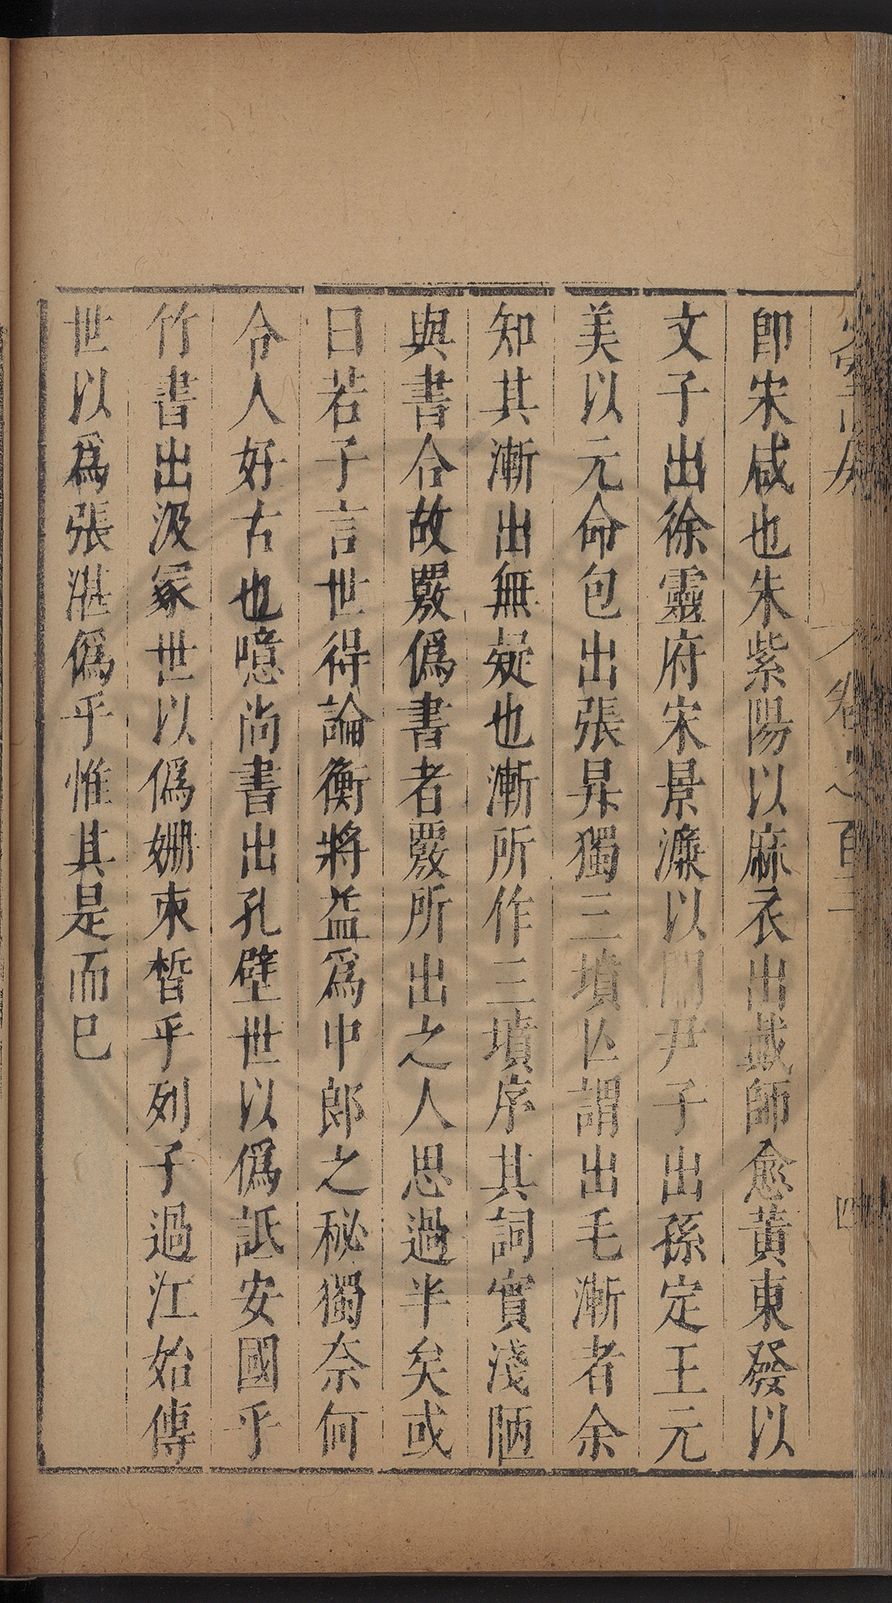 卽宋咸也朱紫陽以麻衣出戴師愈黃東發以
文子出徐靈府宋景濂以關尹子出孫定王元
美以元命包出張昇獨三墳仏謂出毛漸者余
知其漸出無疑也漸所作三墳序其詞實淺陋
與書合故覈僞書者覈所出之人思過半矣或
曰若子言世得論衡將益爲中郎之秘獨奈何
令人好古也噫尚書出孔壁世以僞詆安國乎
竹書出汲冢世以僞姍束晳乎列子過江始傳
世以爲張湛僞乎惟其是而已
卷之百
四